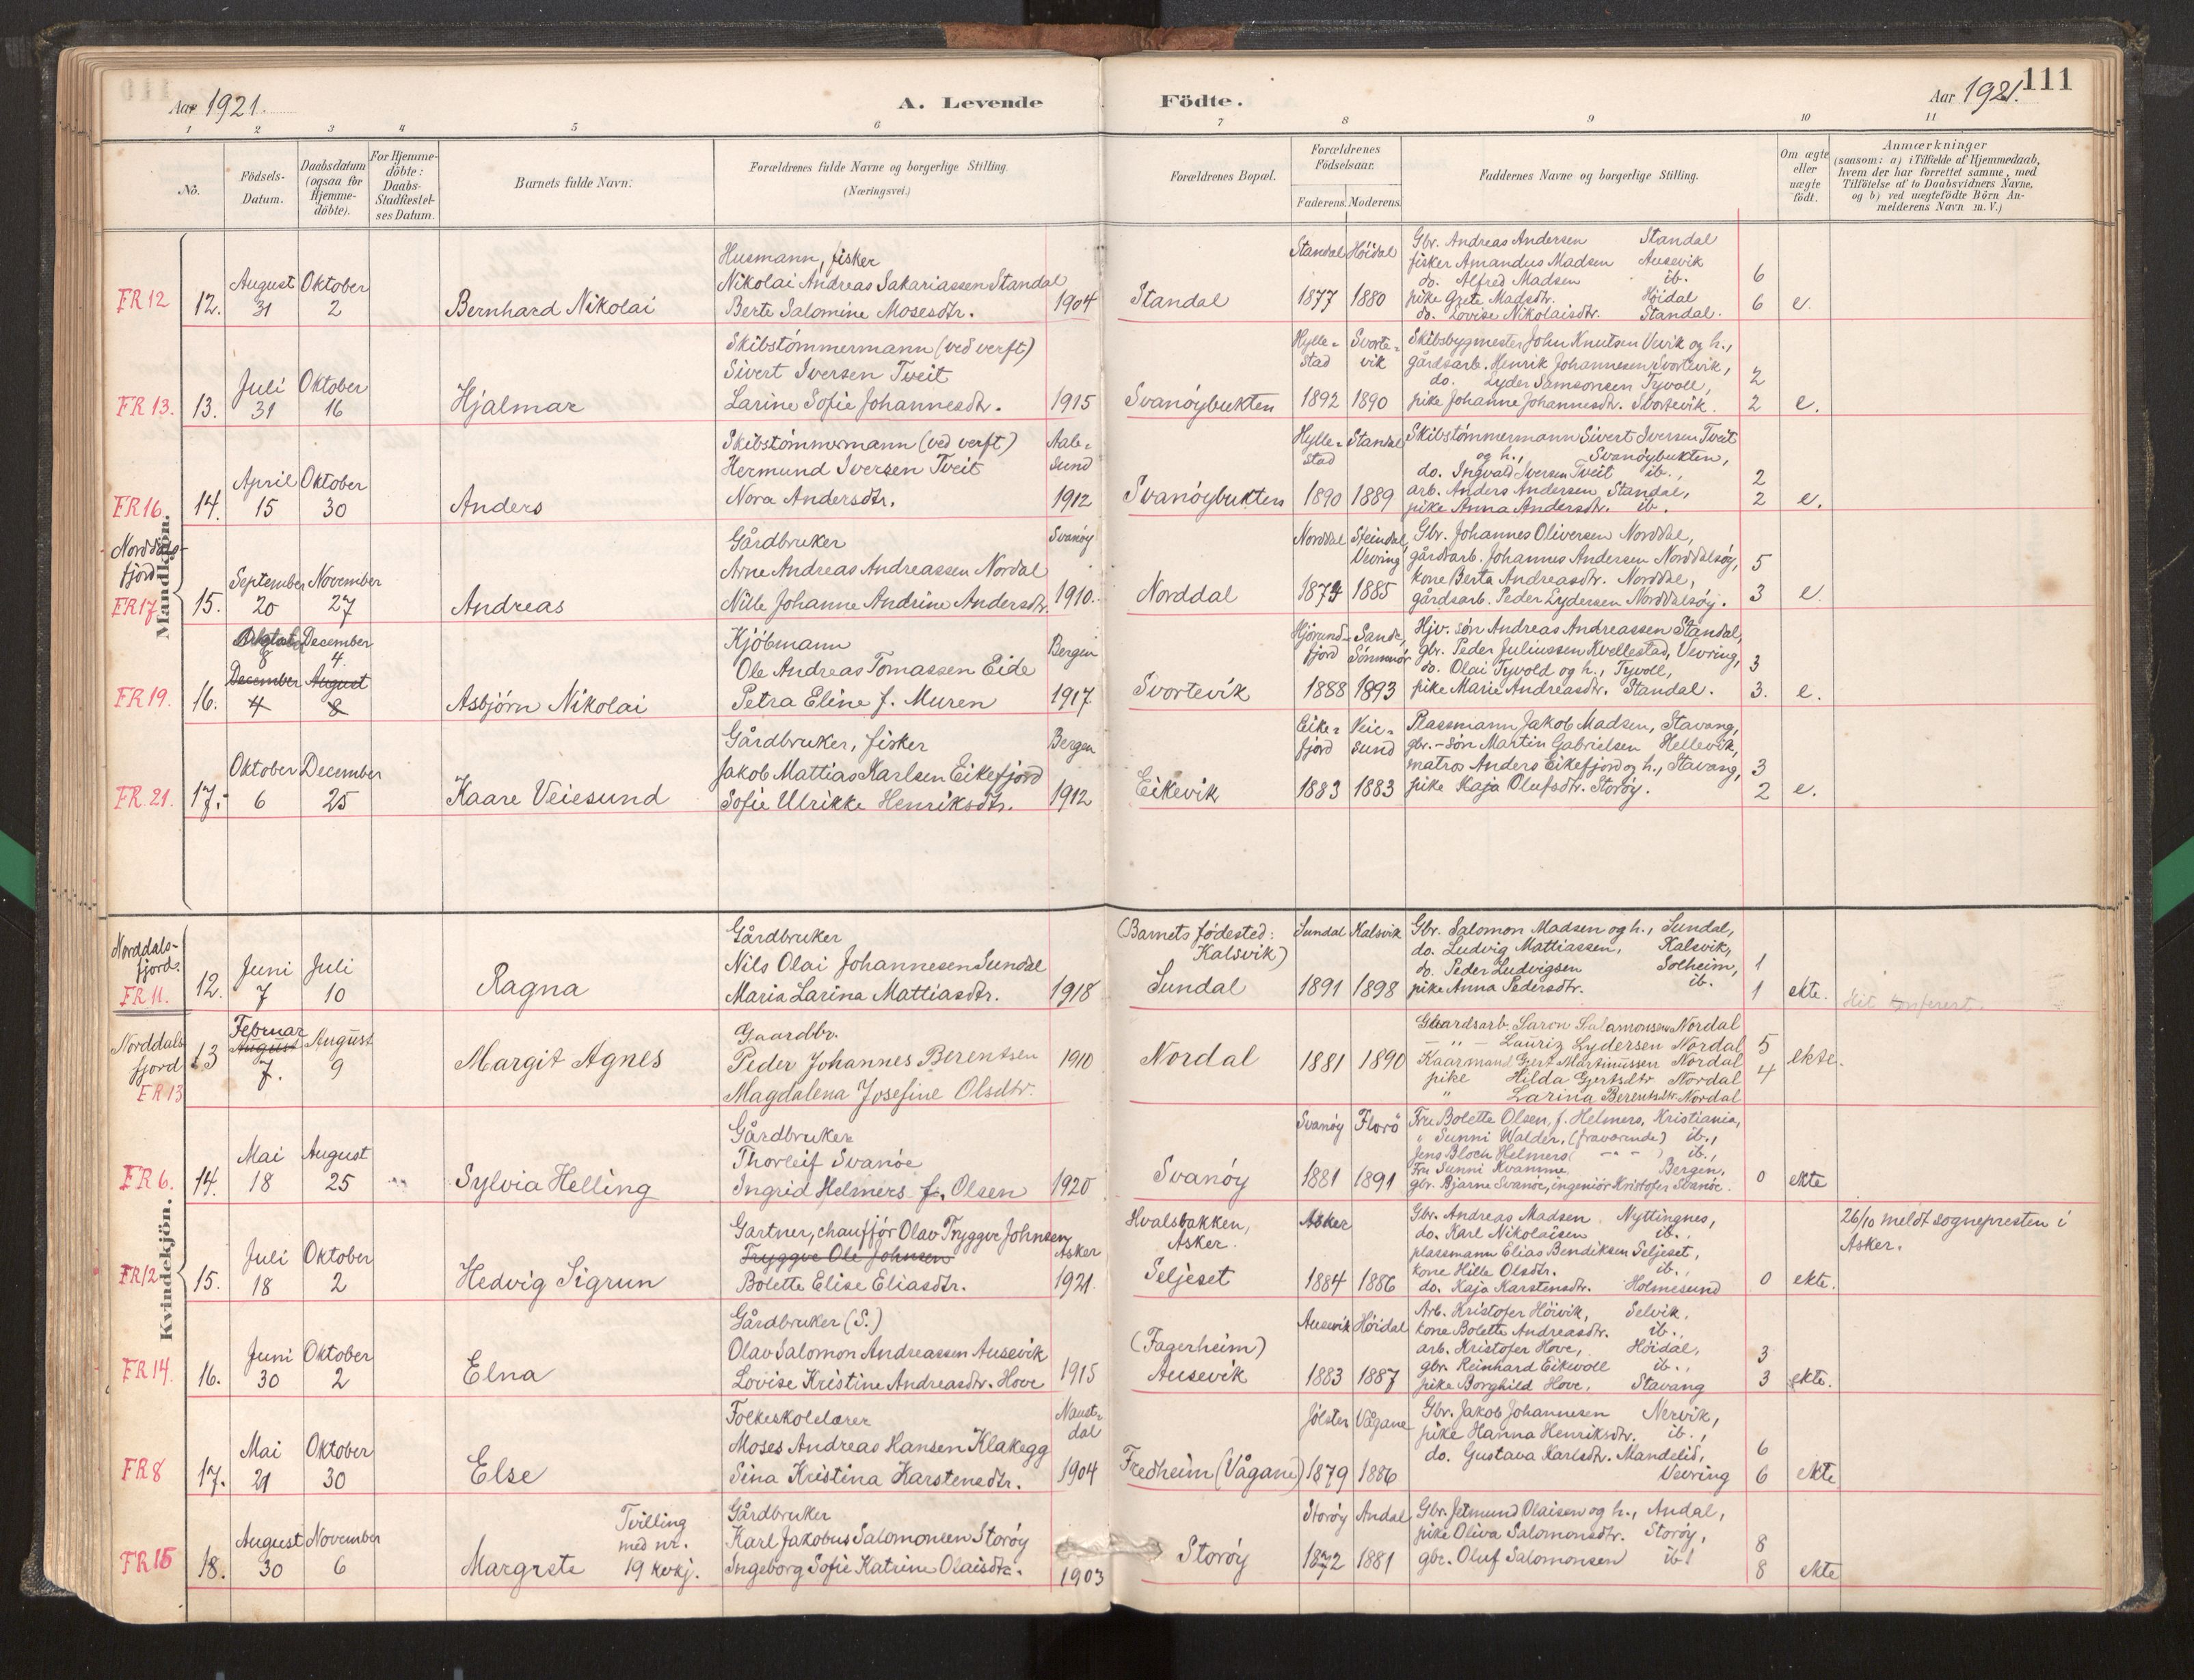 Aar 1921.
A. Levende Födte.
Aar 1921.
111
1 2 3 4 5 6 7 8 9 10 11
Nô.
Födsels-Datum.
Daabsdatum (ogsaa for Hjemme-döbte).
For Hjemme-döbte: Daabs-Stadfæstel-ses Datum.
Barnets fulde Navn.
Forældrenes fulde Navne og borgerlige Stilling. (Næringsvei.)
Forældrenes Bopæl.
Forældrenes Födselsaar.
Faderens. Moderens.
Faddernes Navne og borgerlige Stilling.
Om ægte eller uægte födt.
Anmærkninger
(saasom: a) i Tilfælde af Hjemmedaab,
hvem der har forrettet samme, med
Tilföielse af to Daabsvidners Navne,
og b) ved uægtefödte Börn An-
melderens Navn m. V.)
Mandkjön.
FR 12
12.
August 31
Oktober 2
Bernhard Nikolai
Husmann, fisker
Nikolai Andreas Sakariassen Standal
Berte Salomine Mosesdtr.
1904
Standal
Standal 1877
Höidal 1880
Gbr. Andreas Andersen Standal
fisker Amandus Madsen Ausevik
do. Alfred Madsen ib.
pike Grete Madsdtr. Höidal
do. Lovise Nikolaisdtr. Standal.
6
6
e.
FR 13.
13.
Juli 31
Oktober 16
Hjalmar
Skibstömmermann (ved verft)
Sivert Iversen Tveit
Larine Sofie Johannesdtr.
1915
Svanöybukten
Hylle-stad 1892
Svorte-vik 1890
Skibsbygmester John Knutsen Vevik og h.,
gårdsarb. Henrik Johannesen Svortevik,
do. Lyder Samsonsen Tyvoll,
pike Johanne Johannesdtr. Svortevik.
2
2
e.
FR 16.
14.
April 15
Oktober 30
Anders
Skibstömmermann (ved verft)
Hermund Iversen Tveit
Nora Andersdtr.
Aale-sund 1912
Svanöybukten
Hylle-stad 1890
Standal 1889
Skibstömmermann Sivert Iversen Tveit
og h., Svanöybukten,
do. Ingvald Iversen Tveit ib.,
arb. Anders Andersen Standal,
pike Anna Andersdtr. ib.
2
2
e.
Norddals-fjord
FR 17
15.
September 20
November 27
Andreas
Gårdbruker
Arne Andreas Andreassen Nordal
Nille Johanne Andrine Andersdtr.
Svanöy 1910.
Norddal
Norddal 1874
Steindal, Vevring 1885
Gbr. Johannes Oliversen Norddal,
gårdsarb. Johannes Andersen Norddalsöy,
kone Berta Andreasdtr. Norddal,
gårdsarb. Peder Lydersen Norddalsöy.
5
3
e.
FR 19.
16.
8
December 4
December August
4 8
December 4.
Asbjörn Nikolai
Kjöbmann
Ole Andreas Tomassen Eide
Petra Eline f. Muren
Bergen 1917
Svortevik
Hjörund-fjord 1888
Sande, Sönnmör 1893
Hjv. sön Andreas Andreassen Standal,
gbr. Peder Juliussen Kvellestad, Vevring,
do. Olai Tyvold og h., Tyvoll,
pike Marie Andreasdtr. Standal.
3
3.
e.
FR. 21.
17.
Oktober 6
December 25
Kaare Veiesund
Gårdbruker, fisker
Jakob Mattias Karlsen Eikefjord
Sofie Ulrikke Henriksdtr.
Bergen 1912
Eikevik
Eike-fjord 1883
Veie-sund 1883
Plassmann Jakob Madsen, Stavang,
gbr.-sön Martin Gabrielsen Hellevik,
matros Anders Eikefjord og h., Stavang,
pike Kaja Olufsdtr. Storöy.
3
2
e.
Kvindekjön.
Norddals-fjord.
FR 11.
12.
Juni 7
Juli 10
Ragna
Gårdbruker
Nils Olai Johannesen Sundal
Maria Larina Mattiasdtr.
1918
(Barnets födested: Kalsvik)
Sundal
Sundal 1891
Kalsvik 1898
Gbr. Salomon Madsen og h., Sundal,
do. Ludvig Mattiassen, Kalsvik,
do. Peder Ludvigsen Solheim,
pike Anna Pedersdtr. ib.
1
1
ekte.
Hit konferert.
Norddals fjord
FR 13
13
Februar
August
7.
August 9
Margit Agnes
Gaardbr.
Peder Johannes Berentsen
Magdalena Josefine Olsdtr.
1910
Nordal
1881 1890
Gaardsarb. Saron Salamonsen Nordal
- " - Lauriz Lydersen Nordal
Kaarmand Gjert Martinussen Nordal
pike Hilda Gjertsdtr. Nordal
" Larina Berentsdtr. Nordal
5
4
ekte.
FR 6.
14.
Mai 18
August 25
Sylvia Helling
Gårdbruker
Thorleif Svanöe
Ingrid Helmers f. Olsen
1920
Svanöy
Svanöy 1881
Florö 1891
Fru Bolette Olsen, f. Helmers, Kristiania,
" Sunni Walder, (fraværende) ib.,
Jens Bloch Helmers ( - " - ) ib.,
Fru Sunni Kvamme, Bergen,
gbr. Bjarne Svanöe, ingeniör Kristofer Svanöe.
0
ekte
FR 12
15.
Juli 18
Oktober 2
Hedvig Sigrun
Gartner, chauffjör Olav Tryggve Johnsen
Tryggve Ole Johnsen
Bolette Elise Eliasdtr.
Asker 1921.
Hvalsbakken, Asker.
Seljeset
Asker
1884 1886
Gbr. Andreas Madsen Nyttingnes,
do. Karl Nikolaisen ib.,
plassmann Elias Bendiksen Seljeset,
kone Hille Olsdtr. ib.,
do. Kaja Karstensdtr. Holmesund
0
ekte.
26/10 meldt sognepresten i
Asker.
FR 14.
16.
Juni 30
Oktober 2
Elna
Gårdbruker (S.)
Olav Salomon Andreassen Ausevik
Lovise Kristine Andreasdtr. Hove
1915
(Fagerheim)
Ausevik
Ausevik 1883
Höidal 1887
Arb. Kristofer Höivik, Selvik,
kone Bolette Andreasdtr. ib.,
arb. Kristofer Hove, Höidal,
gbr. Reinhard Eikevoll ib.,
pike Borghild Hove, Stavang
3
3
ekte.
FR 8
17.
Mai 21
Oktober 30
Else
Folkeskolelærer
Moses Andreas Hansen Klakegg
Sina Kristina Karstensdtr.
Naust-dal 1904
Fredheim (Vågane)
Jölster 1879
Vågane 1886
Gbr. Jakob Johannesen Nervik,
pike Hanna Henriksdtr. ib.,
do. Gustava Karlsdtr. Mandelid,
Vevring
6
6
ekte
FR 15
18.
August 30
November 6
Margrete
Tvilling
med nr.
19 kvkj.
Gårdbruker
Karl Jakobus Salomonsen Storöy
Ingeborg Sofie Katrine Olaisdtr.
1903
Storöy
Storöy 1872
Andal 1881
Gbr. Jetmund Olaisen og h., Andal,
pike Oliva Salomonsdtr. Storöy,
gbr. Oluf Salomonsen ib.
8
8
ekte